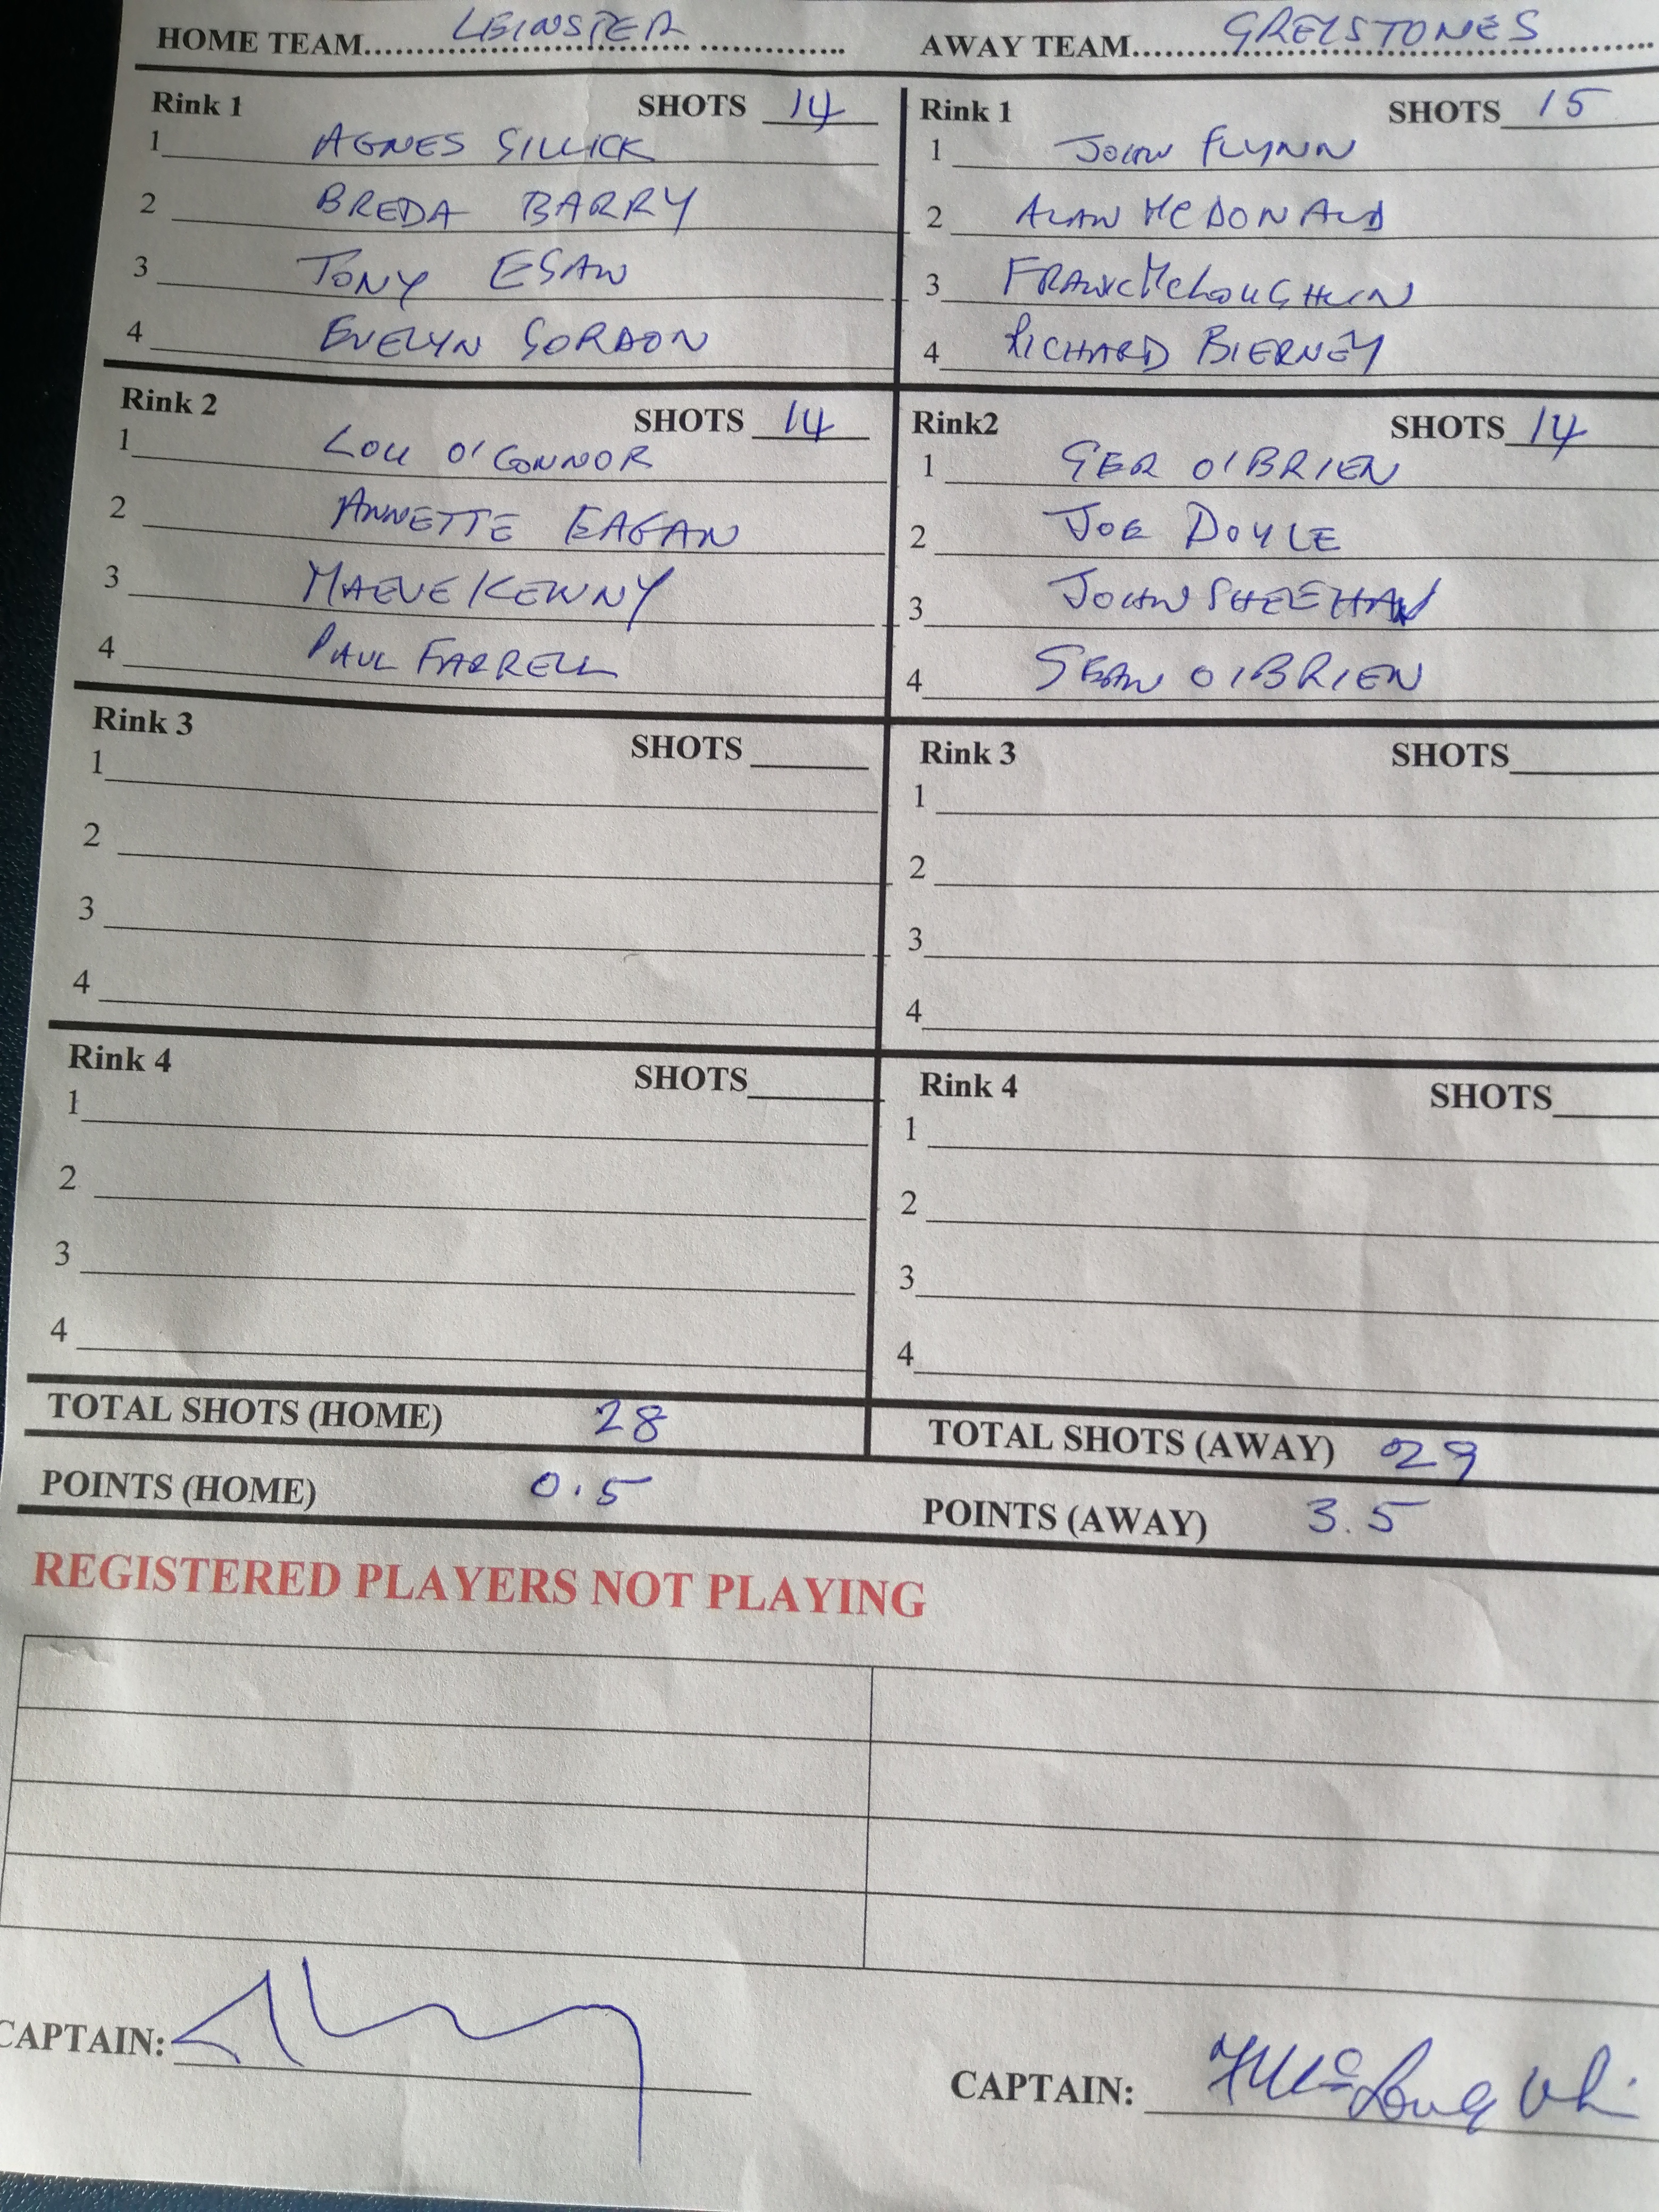 HOME TEAM LEINSTER AWAY TEAM GREISTONES
Rink 1 SHOTS 14
1 AGNES GILLICK
2 BREDA BARRY
3 TONY EGAN
4 EVELYN GORDON
Rink 1 SHOTS 15
1 JOHN FLYNN
2 ALAN McDONALD
3 FRANK McLOUGHLIN
4 RICHARD BIERNEY
Rink 2 SHOTS 14
1 LOU O'CONNOR
2 ANNETTE EAGAN
3 MAEVE KENNY
4 PAUL FARRELL
Rink2 SHOTS 14
1 GER O'BRIEN
2 JOE DOYLE
3 JOHN SHEEHAN
4 SEAN O'BRIEN
Rink 3 SHOTS
1
2
3
4
Rink 3 SHOTS
1
2
3
4
Rink 4 SHOTS
1
2
3
4
Rink 4 SHOTS
1
2
3
4
TOTAL SHOTS (HOME) 28
TOTAL SHOTS (AWAY) 29
POINTS (HOME) 0.5
POINTS (AWAY) 3.5
REGISTERED PLAYERS NOT PLAYING
CAPTAIN:
CAPTAIN: F McLoughlin